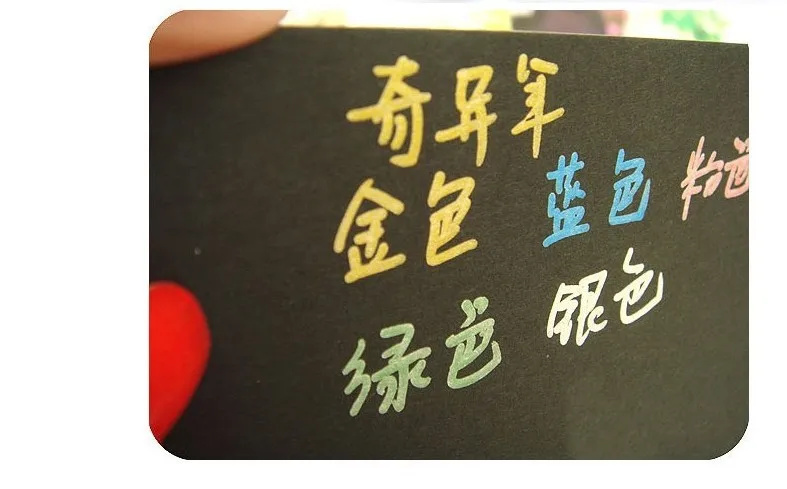 奇异年
金色 蓝色 粉色
绿色 银色